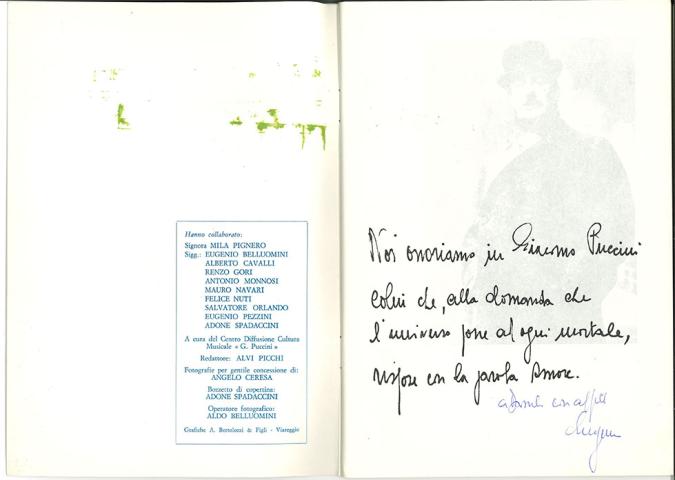 Hanno collaborato:
Signora MILA PIGNERO
Sigg.: EUGENIO BELLUOMINI
ALBERTO CAVALLI
RENZO GORI
ANTONIO MONNOSI
MAURO NAVARI
FELICE NUTI
SALVATORE ORLANDO
EUGENIO PEZZINI
ADONE SPADACCINI
A cura del Centro Diffusione Cultura
Musicale « G. Puccini »
Redattore: ALVI PICCHI
Fotografie per gentile concessione di:
ANGELO CERESA
Bozzetto di copertina:
ADONE SPADACCINI
Operatore fotografico:
ALDO BELLUOMINI
Grafiche A. Bertolozzi & Figli - Viareggio
Noi onoriamo in Giacomo Puccini
colui che, alla domanda che
l'universo pone ad ogni mortale,
rispose con la parola Amore.
con